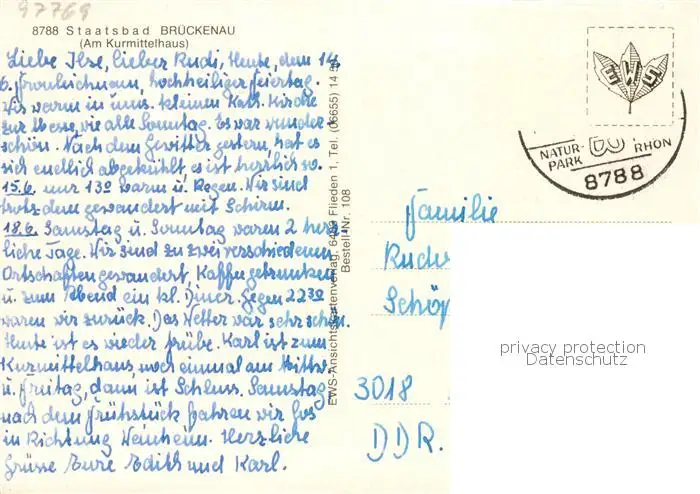 97769
8788 Staatsbad BRÜCKENAU
(Am Kurmittelhaus)
Liebe Ilse, lieber Rudi, Heute, dem 14.
6. Fronleichnam, hochheiliger Feiertag.
Wir waren in uns. kleinen Kath. Kirche
zur Messe, wie alle Sonntag. Es war wunder
schön. Nach dem Gewitter gestern, hat es
sich endlich abgekühlt es ist herrlich so.
15.6. nur 13° warm u. Regen. Wir sind
trotzdem gewandert mit Schirm.
18.6. Samstag u. Sonntag waren 2 herr
liche Tage. Wir sind zu zwei verschiedenen
Ortschaften gewandert, Kaffee getrunken
u. zum Abend ein kl. Diner. Gegen 22³⁰
waren wir zurück. Das Wetter war sehr schön.
Heute ist es wieder trübe. Karl ist zum
Kurmittelhaus, noch einmal am Mittw.
u. Freitag, dann ist Schluss. Samstag
nach dem Frühstück fahren wir los
in Richtung Weinheim. Herzliche
Grüsse Eure Edith und Karl.
EWS-Ansichtskartenverlag, 6409 Flieden 1, Tel. (06655) 14
Bestell-Nr. 108
EWS
NATUR-
PARK
RHÖN
8788
Familie
Rudi
Schöp
3018
DDR.
privacy protection
Datenschutz